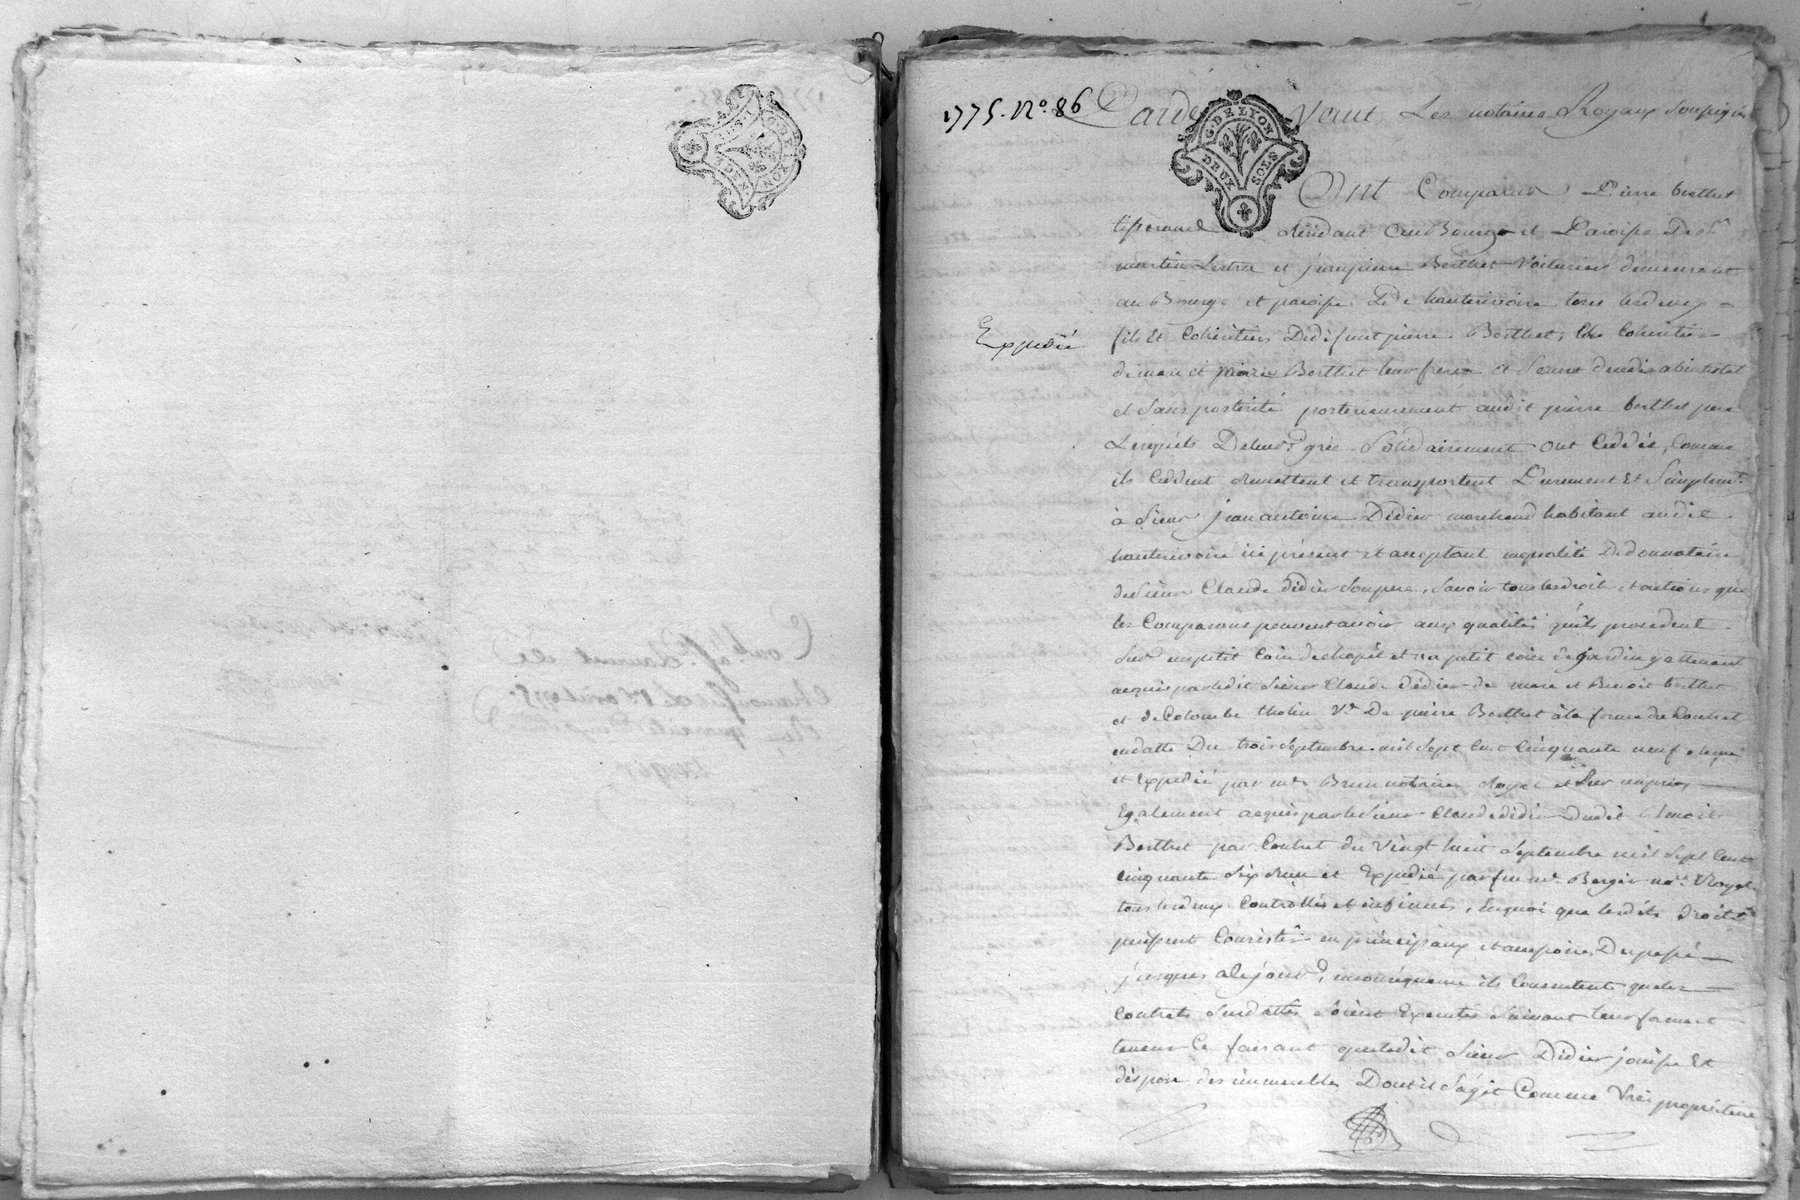 1775. N.º 86
G. DE LYON
DEUX SOLS
Pardevant Les notaires Royaux Soussignés
Ont Comparus Pierre berthet
tisserand résidant au Bourg et Paroisse De St
martin Lestra et jean pierre Berthet Voiturier demeurant
au Bourg et paroisse De hauterivoire tous les deux
fils et Cohéritiers De défunt pierre Berthet,
Expédié
de marc et Berthet leur frere et Soeur décédés abintestat
et Sans postérité postérieurement audit pierre berthet pere
Lesquels De leur gré Solidairement ont Cédés, Comme
ils Cedent remettent et transportent Purement et Simplemt.
à Sieur jean antoine Didier marchand habitant audit
hauterivoire ici présent et acceptant en qualité De donnataire
de Sieur Claude Didier Son pere, Savoir tous les droits et actions que
les Comparants peuvent avoir aux qualités qu'ils procedent
Sur un petit Coin de chapit et un petit coin de jardin y attenant
acquis par ledit Sieur Claude Didier de marc et Benoit berthet
et de Colombe tholin Ve. De pierre Berthet à la forme du Contrat
en datte Du trois Septembre mil Sept Cent Cinquante neuf
et Expédié par me. Brun notaire Royal et Sur un
Egalement acquis par le Sieur Claude didier dudit Benoit
Berthet par Contrat du Vingt huit Septembre mil Sept Cent
cinquante Six reçu et Expédié par feu me. Berger nore. Royal
tous les deux Controllés et insinués, En quoi que lesdits droits
puissent Consister en principaux et accessoires Du passé
jusques à Ce jour, en conséquence ils Consentent que les
Contrats Susdattés soient Executés Suivant leur forme et
teneur Ce faisant que ledit Sieur Didier jouisse Et
dispose des immeubles Dont il S'agit Comme Vrai propriétaire